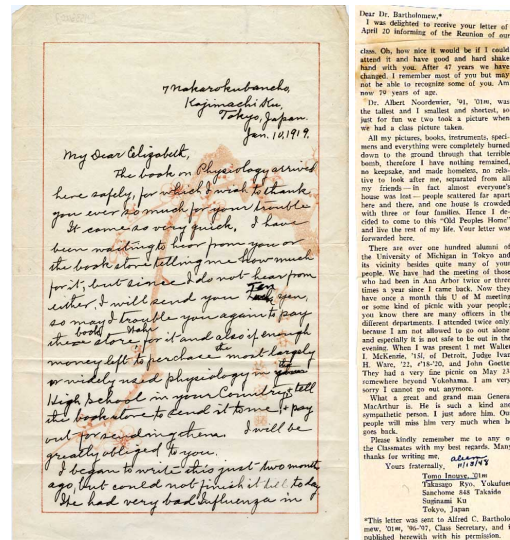 7 Nakarokubancho,
Kojimachi Ku,
Tokyo, Japan.
Jan. 10, 1919.
My Dear Elizabeth,
The book on Physiology arrived
here safely, for which I wish to thank
you ever so much for your trouble
It come so very quick, I have
been waiting to hear from you or
the book store telling me how much
for it; but since I do not hear from
either, I will send you Ten yen,
so may I trouble you again to pay
the book store for it and also if enough
money left to perchace the most largely
or widely used physiology in the
High School in your Country & tell
the bookstore to send it to me, & pay
out for sending them. I will be
greatly obliged to you.
I began to write this just two month
ago, but could not finish it till today
We had very bad Influenza in
Dear Dr. Bartholomew,*
I was delighted to receive your letter of
April 20 informing of the Reunion of our
class. Oh, how nice it would be if I could
attend it and have good and hard shake
hand with you. After 47 years we have
changed. I remember most of you but may
not be able to recognize some of you. Am
now 79 years of age.
Dr. Albert Noordewier, '91, '01m, was
the tallest and I smallest and shortest, so
just for fun we two took a picture when
we had a class picture taken.
All my pictures, books, instruments, speci-
mens and everything were completely burned
down to the ground through that terrible
bomb, therefore I have nothing remained,
no keepsake, and made homeless, no rela-
tive to look after me, separated from all
my friends — in fact almost everyone's
house was lost — people scattered far apart
here and there, and one house is crowded
with three or four families. Hence I de-
cided to come to this "Old Peoples Home"
and live the rest of my life. Your letter was
forwarded here.
There are over one hundred alumni of
the University of Michigan in Tokyo and
its vicinity besides quite many of your
people. We have had the meeting of those
who had been in Ann Arbor twice or three
times a year since I came back. Now they
have once a month this U of M meeting
or some kind of picnic with your people;
you know there are many officers in the
different departments. I attended twice only
because I am not allowed to go out alone
and especially it is not safe to be out in the
evening. When I was present I met Walter
I. McKenzie, '15l, of Detroit, Judge Ivan
H. Ware, '22, e'18-'20, and John Goette.
They had a very fine picnic on May 23
somewhere beyond Yokohama. I am very
sorry I cannot go out anymore.
What a great and grand man General
MacArthur is. He is such a kind and
sympathetic person. I just adore him. Our
people will miss him very much when he
goes back.
Please kindly remember me to any of
the Classmates with my best regards. Many
thanks for writing me,
Yours fraternally,
11/13/48
Tomo Inouye, '01m
Takasago Ryo, Yokufuen
Sanchome 848 Takaido
Suginami Ku
Tokyo, Japan
*This letter was sent to Alfred C. Bartholo-
mew, '01m, '96-'97, Class Secretary, and is
published herewith with his permission.